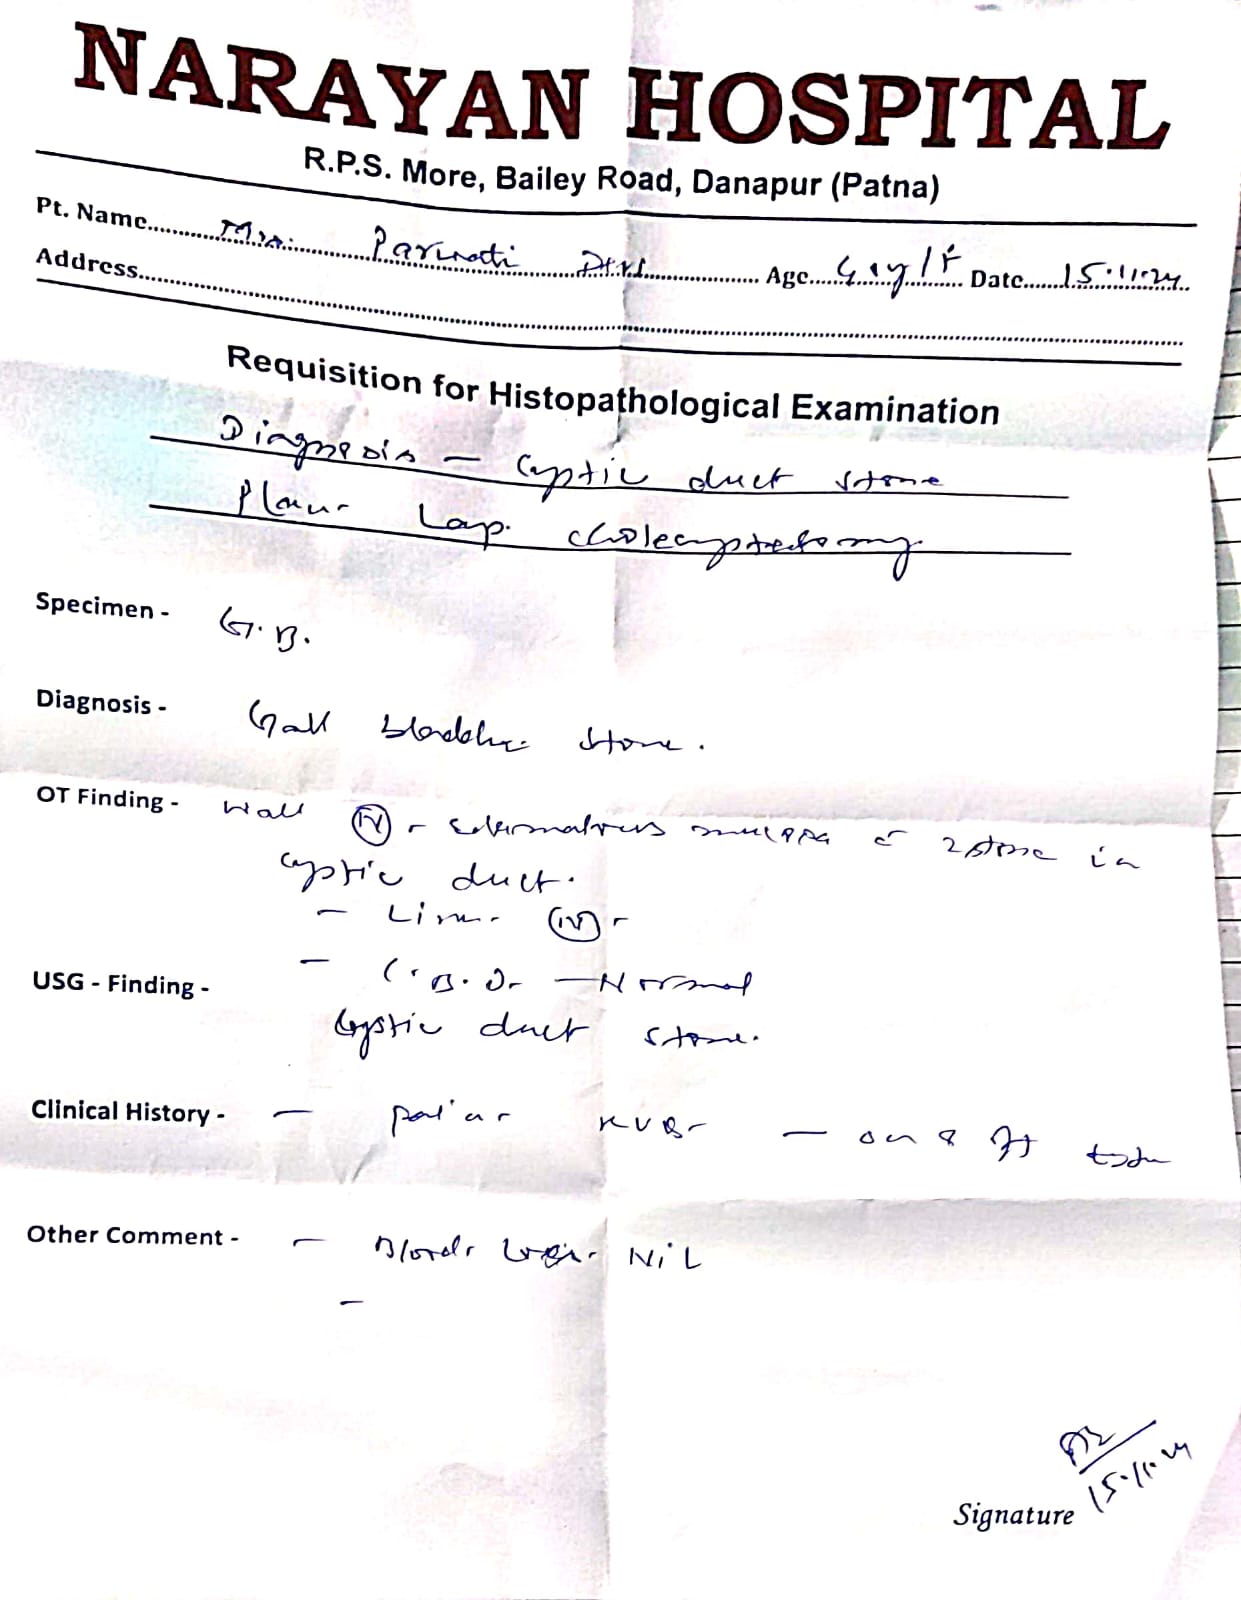 NARAYAN HOSPITAL
R.P.S. More, Bailey Road, Danapur (Patna)
Pt. Name Mrs. Parwati Devi Age Date 15.11.24
Address
Requisition for Histopathological Examination
Diagnosis - Cystic duct stone
Plan - Lap. cholecystectomy
Specimen - G.B.
Diagnosis - Gall bladder stone.
OT Finding - Wall (N) - 2 stone in
cystic duct.
- Liver (N) -
- C.B.D - Normal
USG - Finding -
Cystic duct stone.
Clinical History - -
Other Comment - - Blood NiL
-
15.11.24
Signature